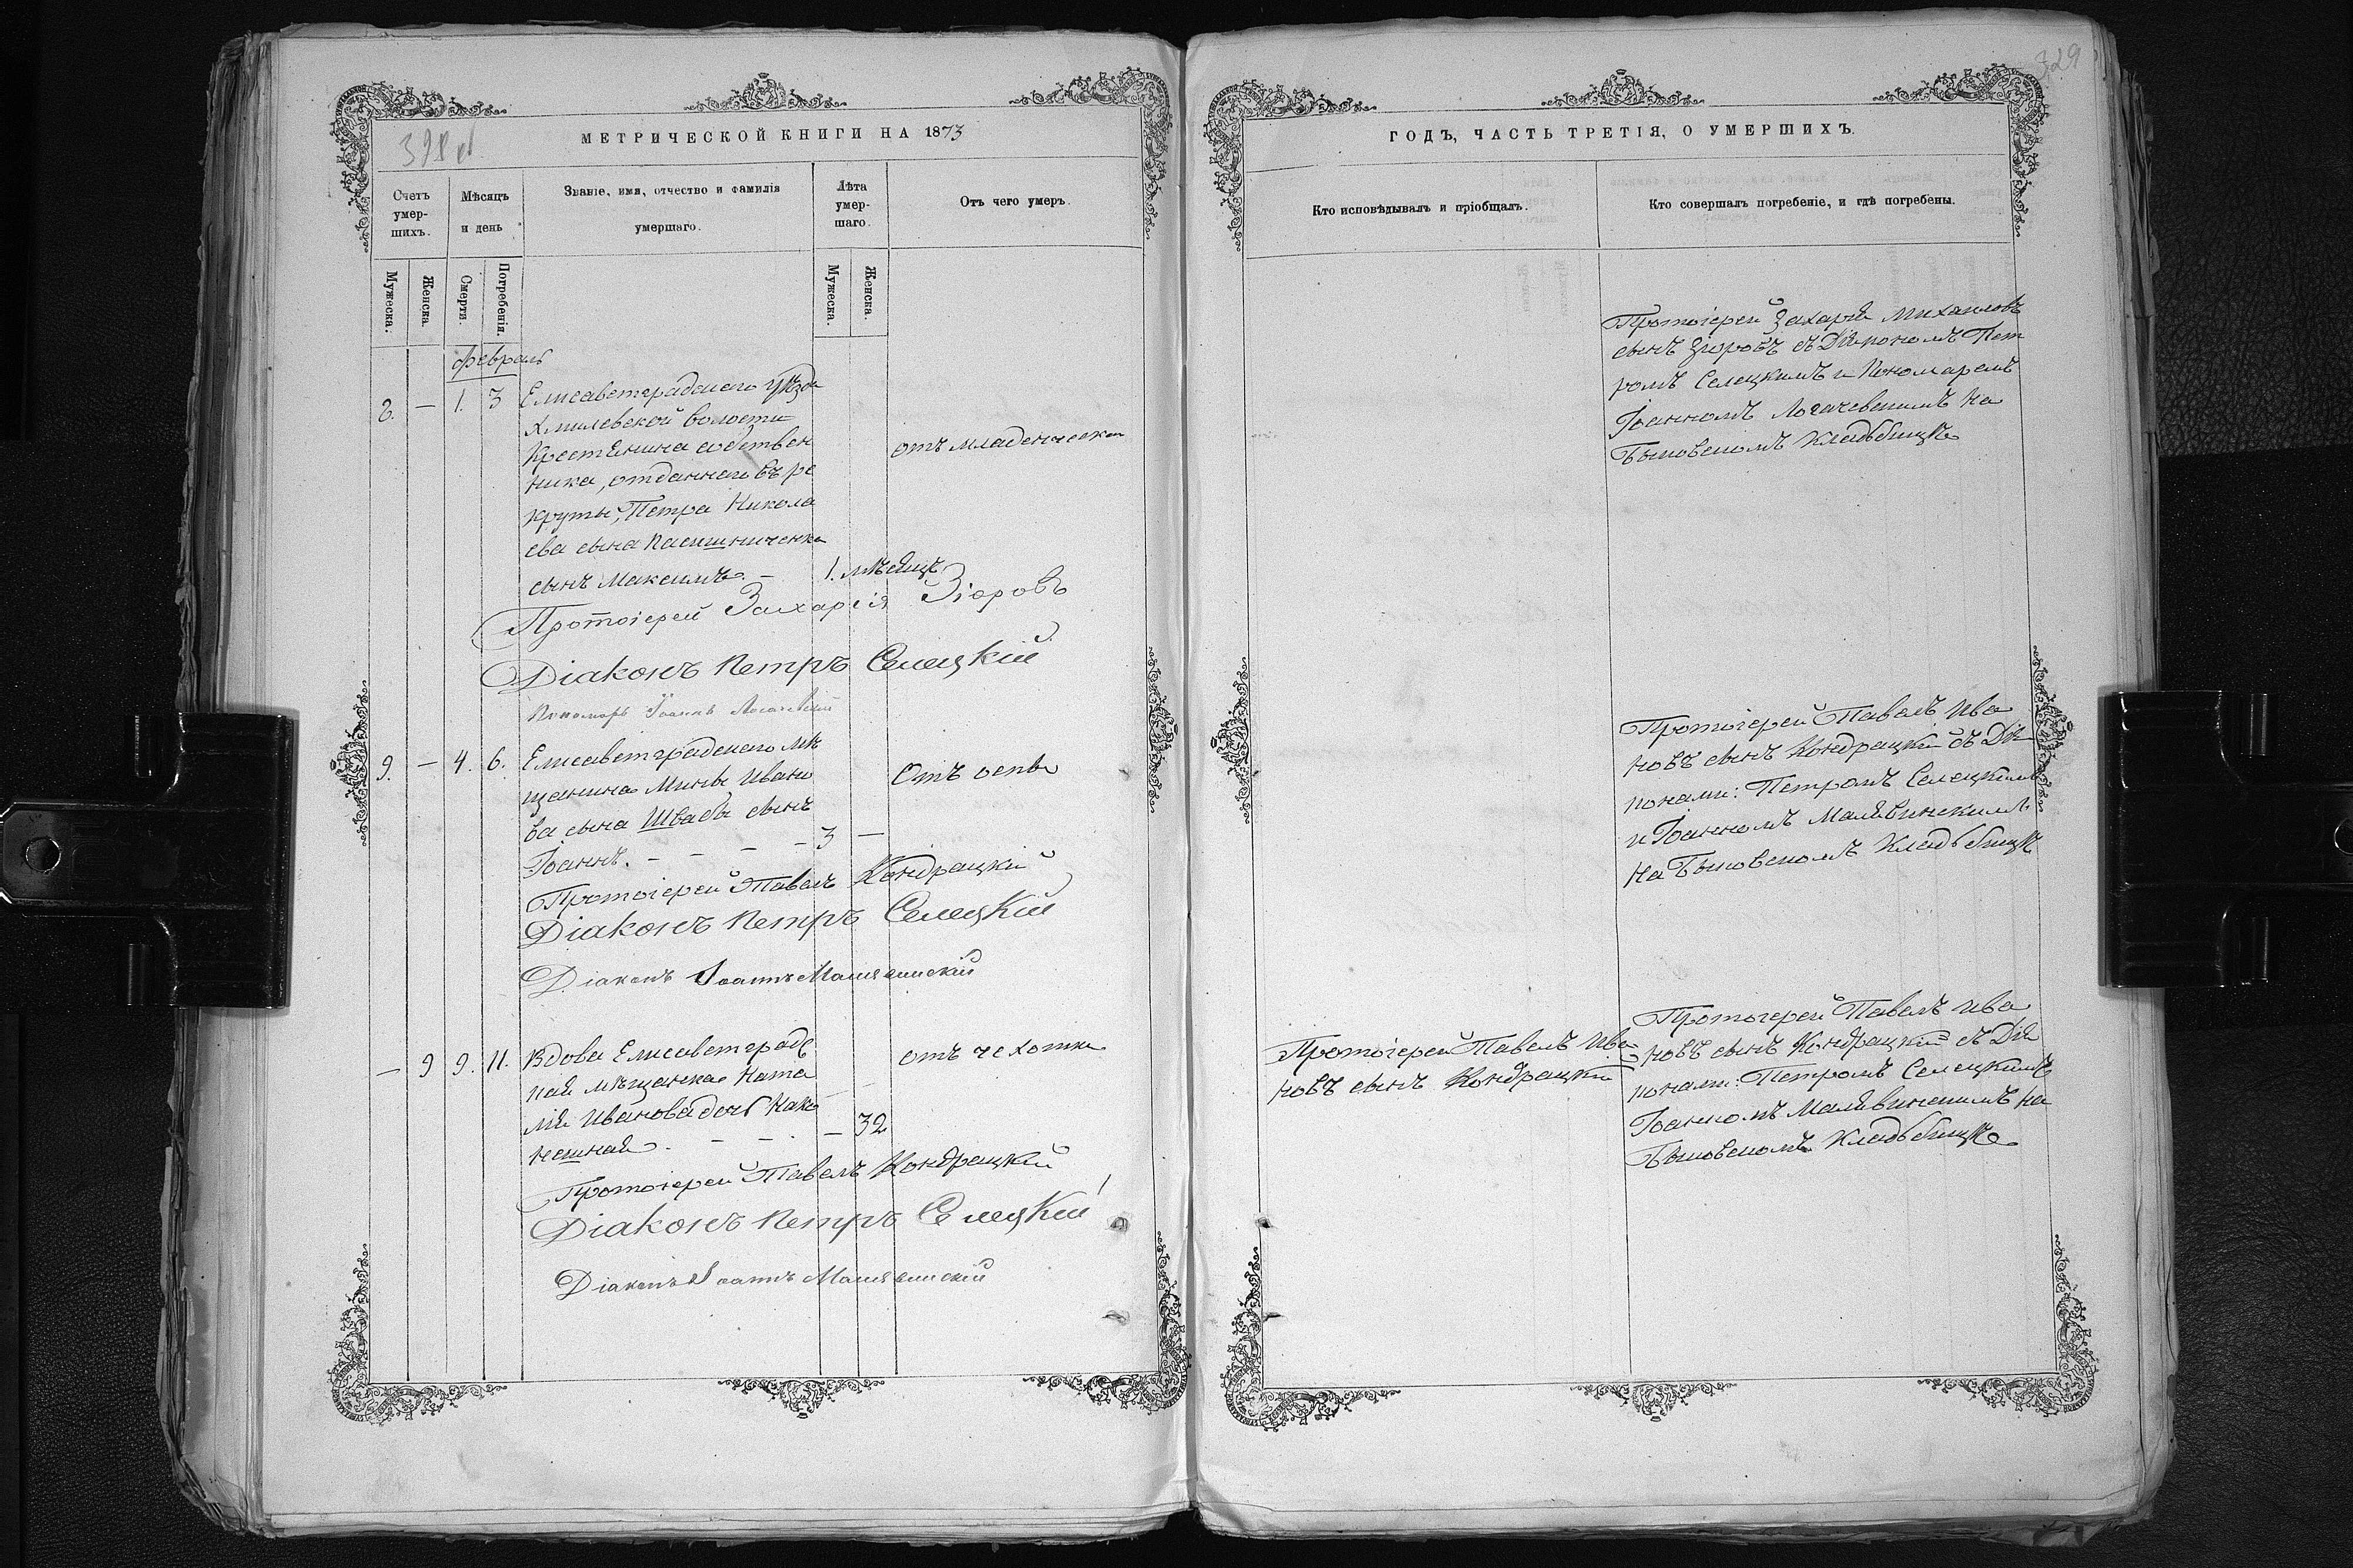 329
МЕТРИЧЕСКОЙ КНИГИ НА 1873
Счетъ умер-шихъ.
Мѣсяцъ и день
Званіе, имя, отчество и фамилія умершаго.
Лѣта умер-шаго.
Отъ чего умеръ.
Мужеска.
Женска.
Смерти.
Погребенія.
Мужеска.
Женска.
Февраль
8. — 1. 3 Елисаветградскаго уѣзда
Хмилевской волости
Крестьянина собствен
ника, отданнаго въ ре
круты, Петра Никола
ева сына Пасишниченка
сынъ Максимъ. — 1. мѣсяцъ
отъ младенческой
Протоіерей Захарія Зіоровъ
Діаконъ Петръ Селецкій
Пономарь Іоаннъ Логачевскій
9. — 4. 6. Елисаветградскаго мѣ
щанина Мины Ивано
ва сына Швабы сынъ
Іоаннъ. — — — — 3 —
Отъ оспы
Протоіерей Павелъ Кондрацкій
Діаконъ Петръ Селецкій
Діаконъ Іоаннъ Малявинскій
— 9 9. 11. Вдова Елисаветградс
кая мѣщанка Ната
лія Иванова дочь Нако
нешная. — — — 32
отъ чехотки
Протоіерей Павелъ Кондрацкій
Діаконъ Петръ Селецкій
Діаконъ Іоаннъ Малявинскій
ГОДЪ, ЧАСТЬ ТРЕТІЯ, О УМЕРШИХЪ.
Кто исповѣдывалъ и пріобщалъ.
Кто совершалъ погребеніе, и гдѣ погребены.
Протоіерей Захарія Михаиловъ
сынъ Зіоровъ съ Діакономъ Пет
ромъ Селецкимъ и Пономаремъ
Іоанномъ Логачевскимъ на
Быковскомъ кладьбищѣ
Протоіерей Павелъ Ива
новъ сынъ Кондрацкій съ Діа
конами: Петромъ Селецкимъ
и Іоанномъ Малявинскимъ
на Быковскомъ кладьбищѣ
Протоіерей Павелъ Ива
новъ сынъ Кондрацкій
Протоіерей Павелъ Ива
новъ сынъ Кондрацкій съ Діа
конами: Петромъ Селецкимъ
Іоанномъ Малявинскимъ на
Быковскомъ кладьбищѣ